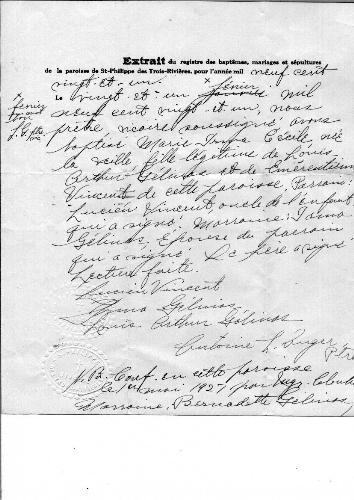 Extrait du registre des baptêmes, mariages et sépultures
de la paroisse de St-Philippe des Trois-Rivières, pour l'année mil neuf cent
vingt-et-un.
x février
Le vingt-et-un janvier mil
x février
neuf cent vingt-et-un, nous
prêtre, vicaire soussigné avons
baptisé Marie Irma Cécile, née
la veille fille légitime de Louis
Arthur Gélinas et de Emérentienne
Vincent de cette paroisse. Parrain:
Lucien Vincent oncle de l'enfant
qui a signé, Marraine: Irma
Gélinas, Epouse du parrain
qui a signé. Le père a signé
Lecture faite.
Lucien Vincent
Irma Gélinas
Louis Arthur Gélinas
Antoine
Ptre
N.B. Conf. en cette paroisse
le 1er mai 1927 par Mgr.
Marraine, Bernadette Gélinas